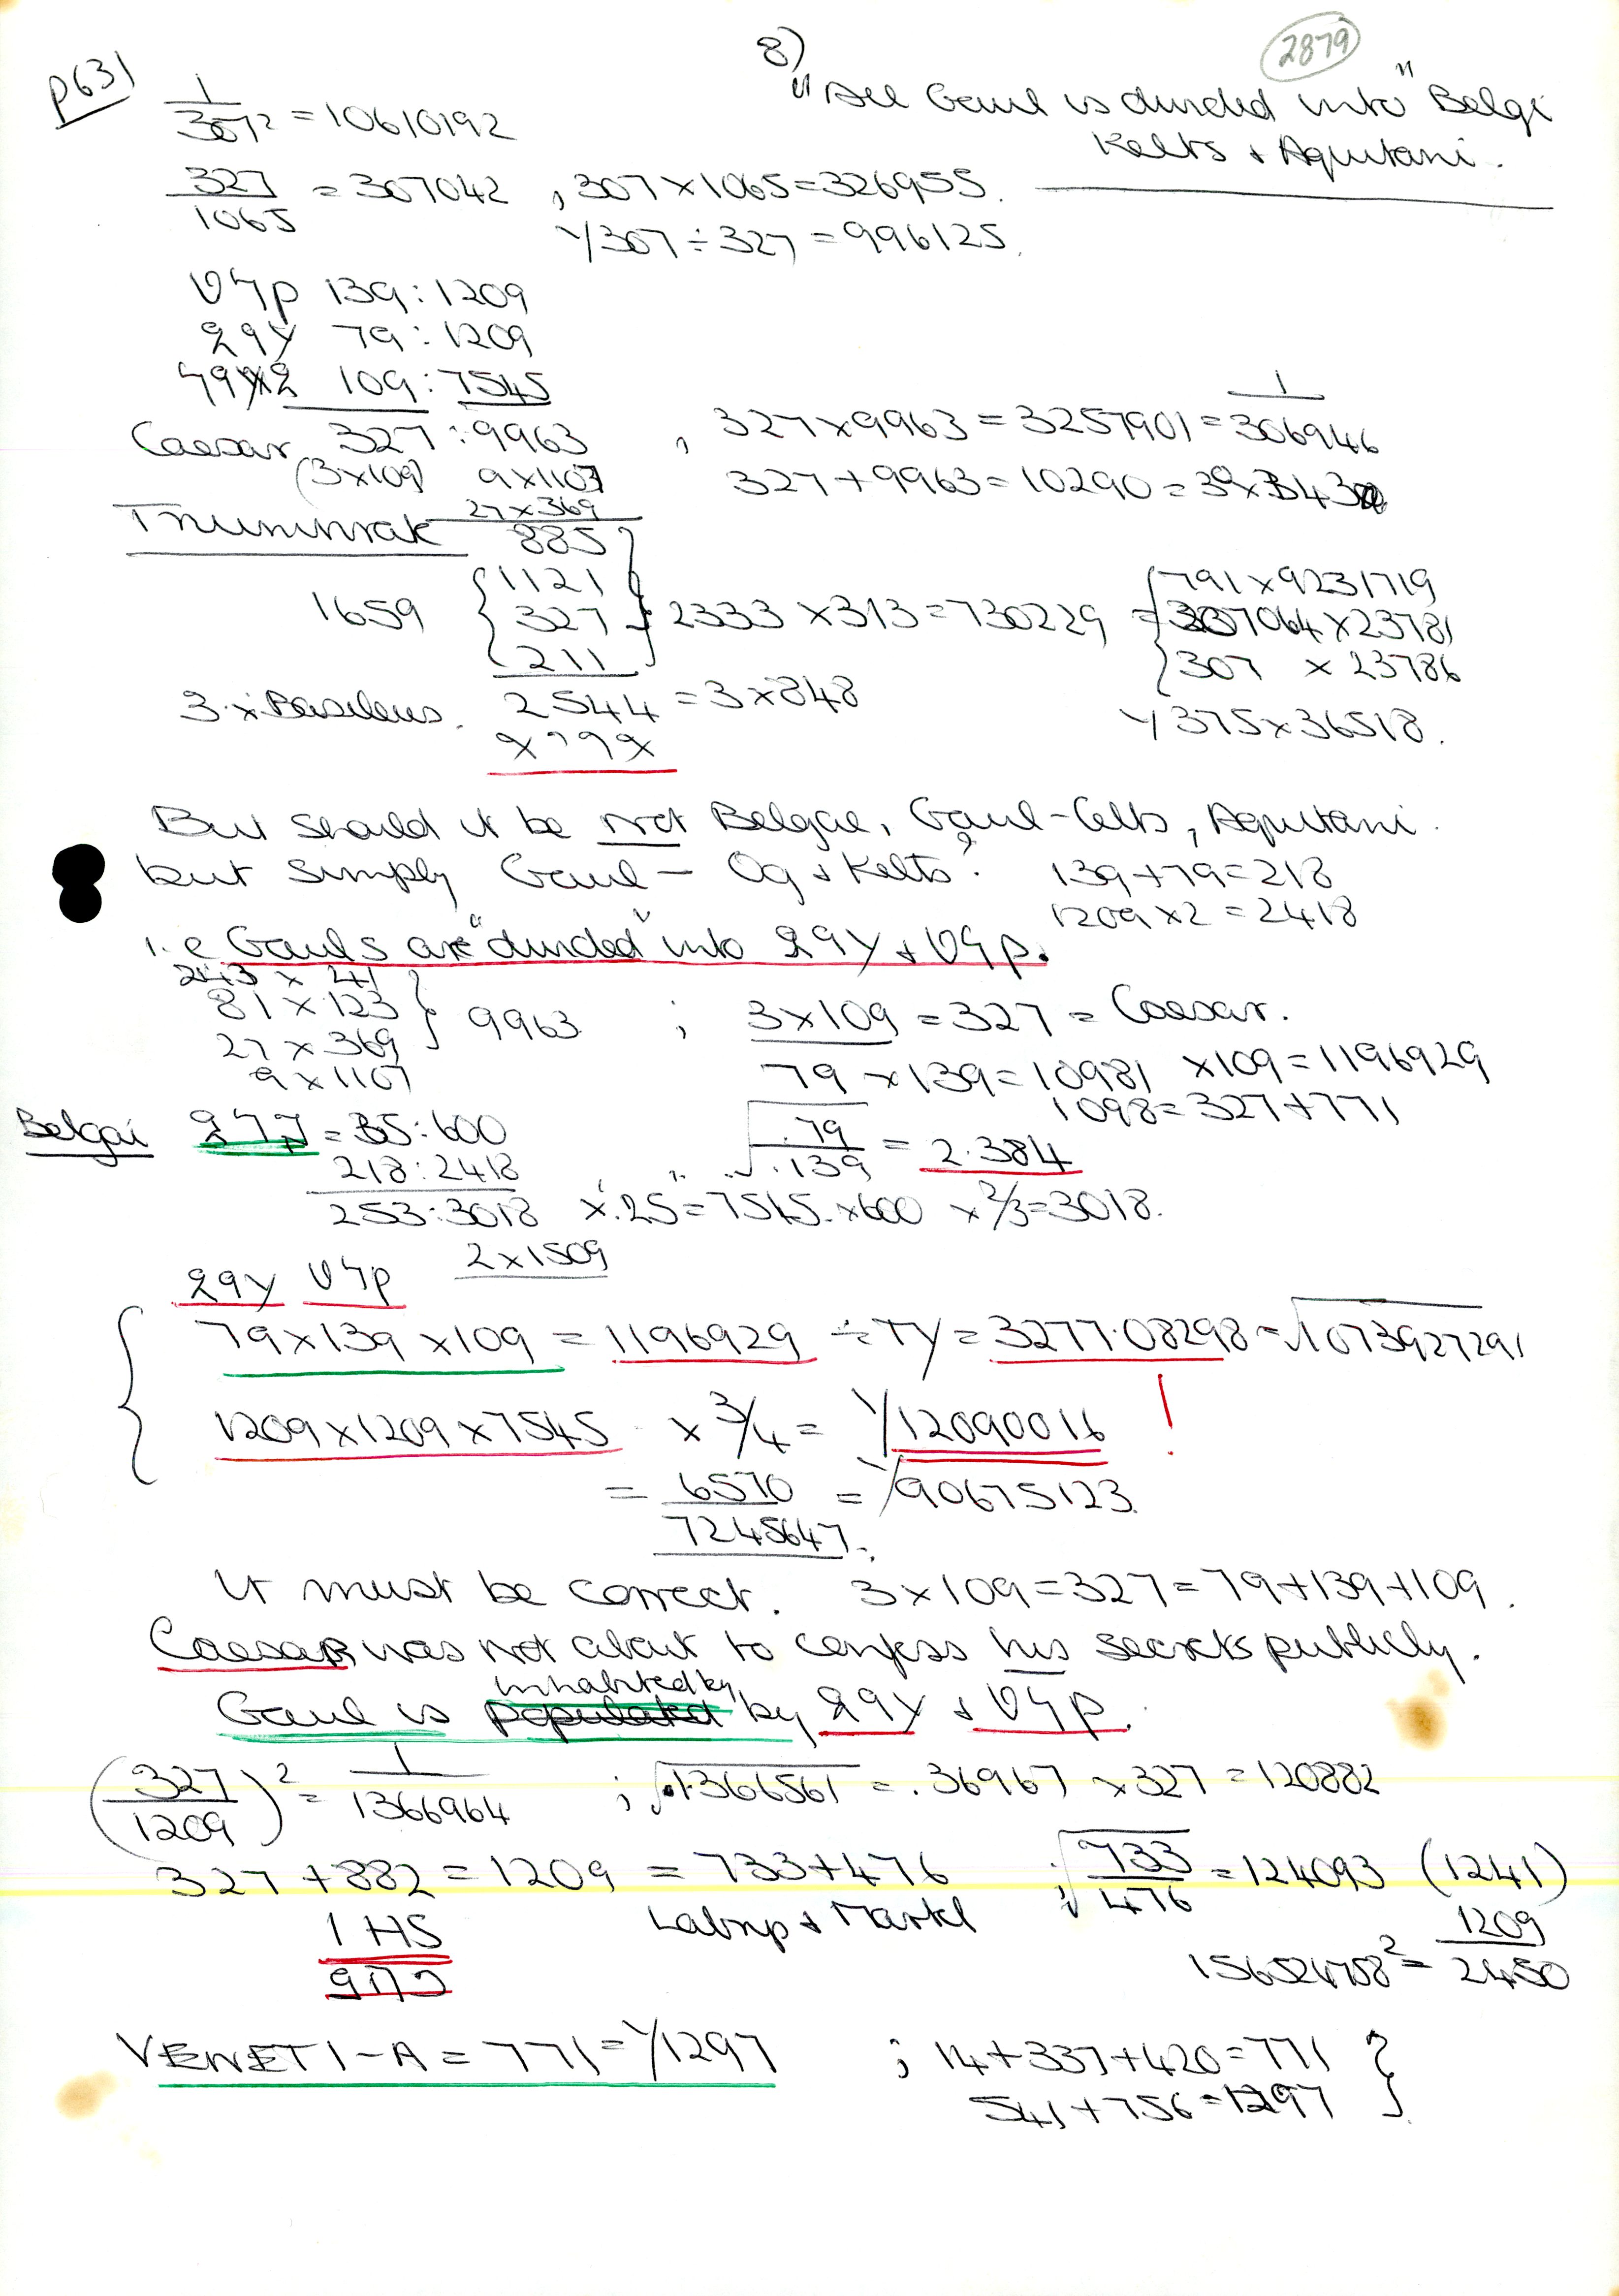 p631
8)
2879
"All Gaul is divided into" Belgi
Kelts & Aquitani.
1/307² = 10610192
327/1065 = 307042 , 307×1065=326955.
1/307÷327 = 996125.
139:1209
79:1209
109:7545
Caesar 327:9963 , 327×9963=3257901= 1/306946
(3×109) 9×1107 327+9963=10290=30×343
27×369
885
1659 { 1121
327 } 2333 ×313=730229 = { 791×9231719
307064×23781
211 307 × 23786
3× Basileus. 2544 = 3×848
1/375×36518.
But should it be not Belgae, Gaul-Celts, Aquitani.
but simply Gaul - Og & Kelts? 139+79=218
1209×2=2418
i.e Gauls are "divided" into
243 × 41
81×123 } 9963 ; 3×109=327= Caesar.
27×369
9×1107
79×139=10981 ×109=1196929
1098=327+771
Belgai = 35:600 √.79/.139 = 2.384
218:2418
253:3018 ×.25=7545.×600 ×2/3=3018.
2×1509
79×139×109 = 1196929 ÷TY=3277.08298=√1073927291
1209×1209×7545 ×3/4= 1/12090016 !
= 6570/7245647. = 1/90675123.
It must be correct. 3×109=327=79+139+109.
Caesar was not about to confess his secrets publicly.
inhabited by
Gaul is populated by
(327/1209)² = 1/1366964 ; √.1366561 = .36967 ×327=120882
327+882=1209 = 733+476 √733/476 = 124093 (1241)
1 HS Labrys & Martel
1209/2450
VENETI-A=771=1/1297 ; 14+337+420=771 }
541+756=1297